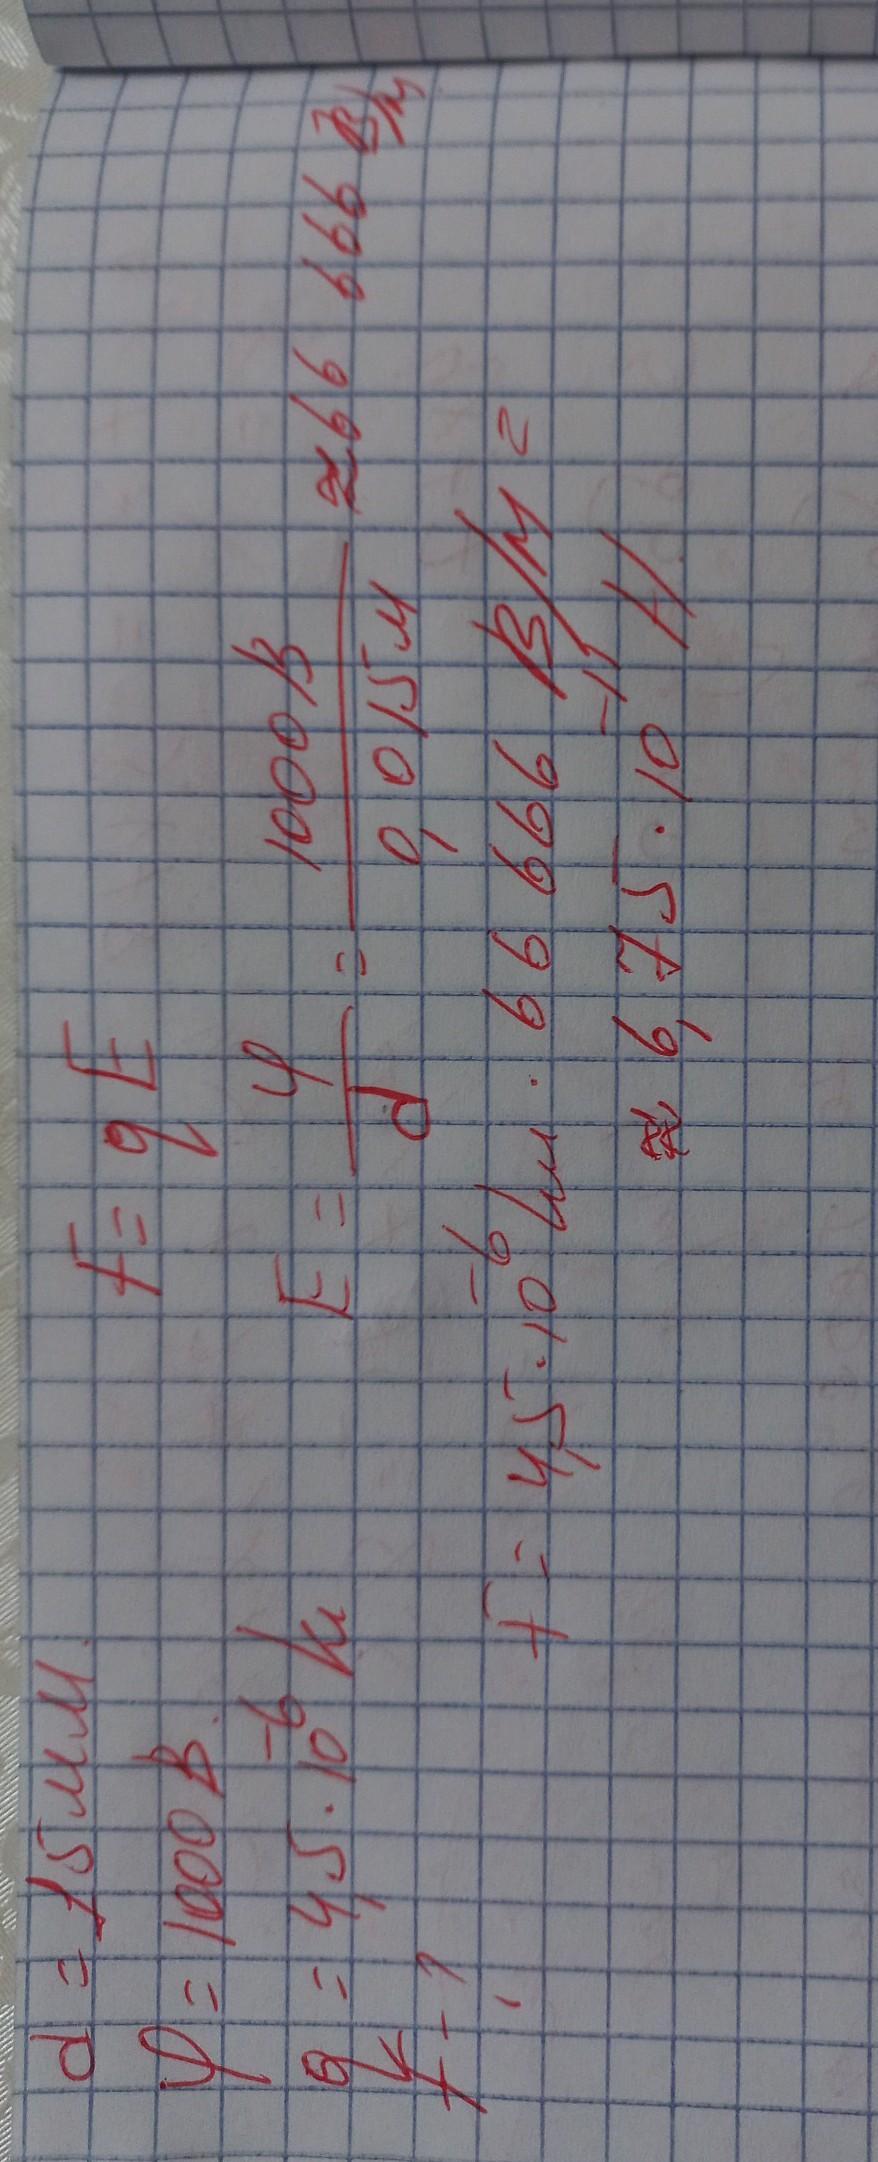 d = 15 мм.
φ = 1000 В.
q = 4,5 · 10⁻⁶ Кл
F - ?
F = q E
E = φ/d = 1000 В/0,015 м ≈ 66 666 В/м
F = 4,5 · 10⁻⁶ Кл · 66 666 В/м =
≈ 6,75 · 10⁻¹ Н